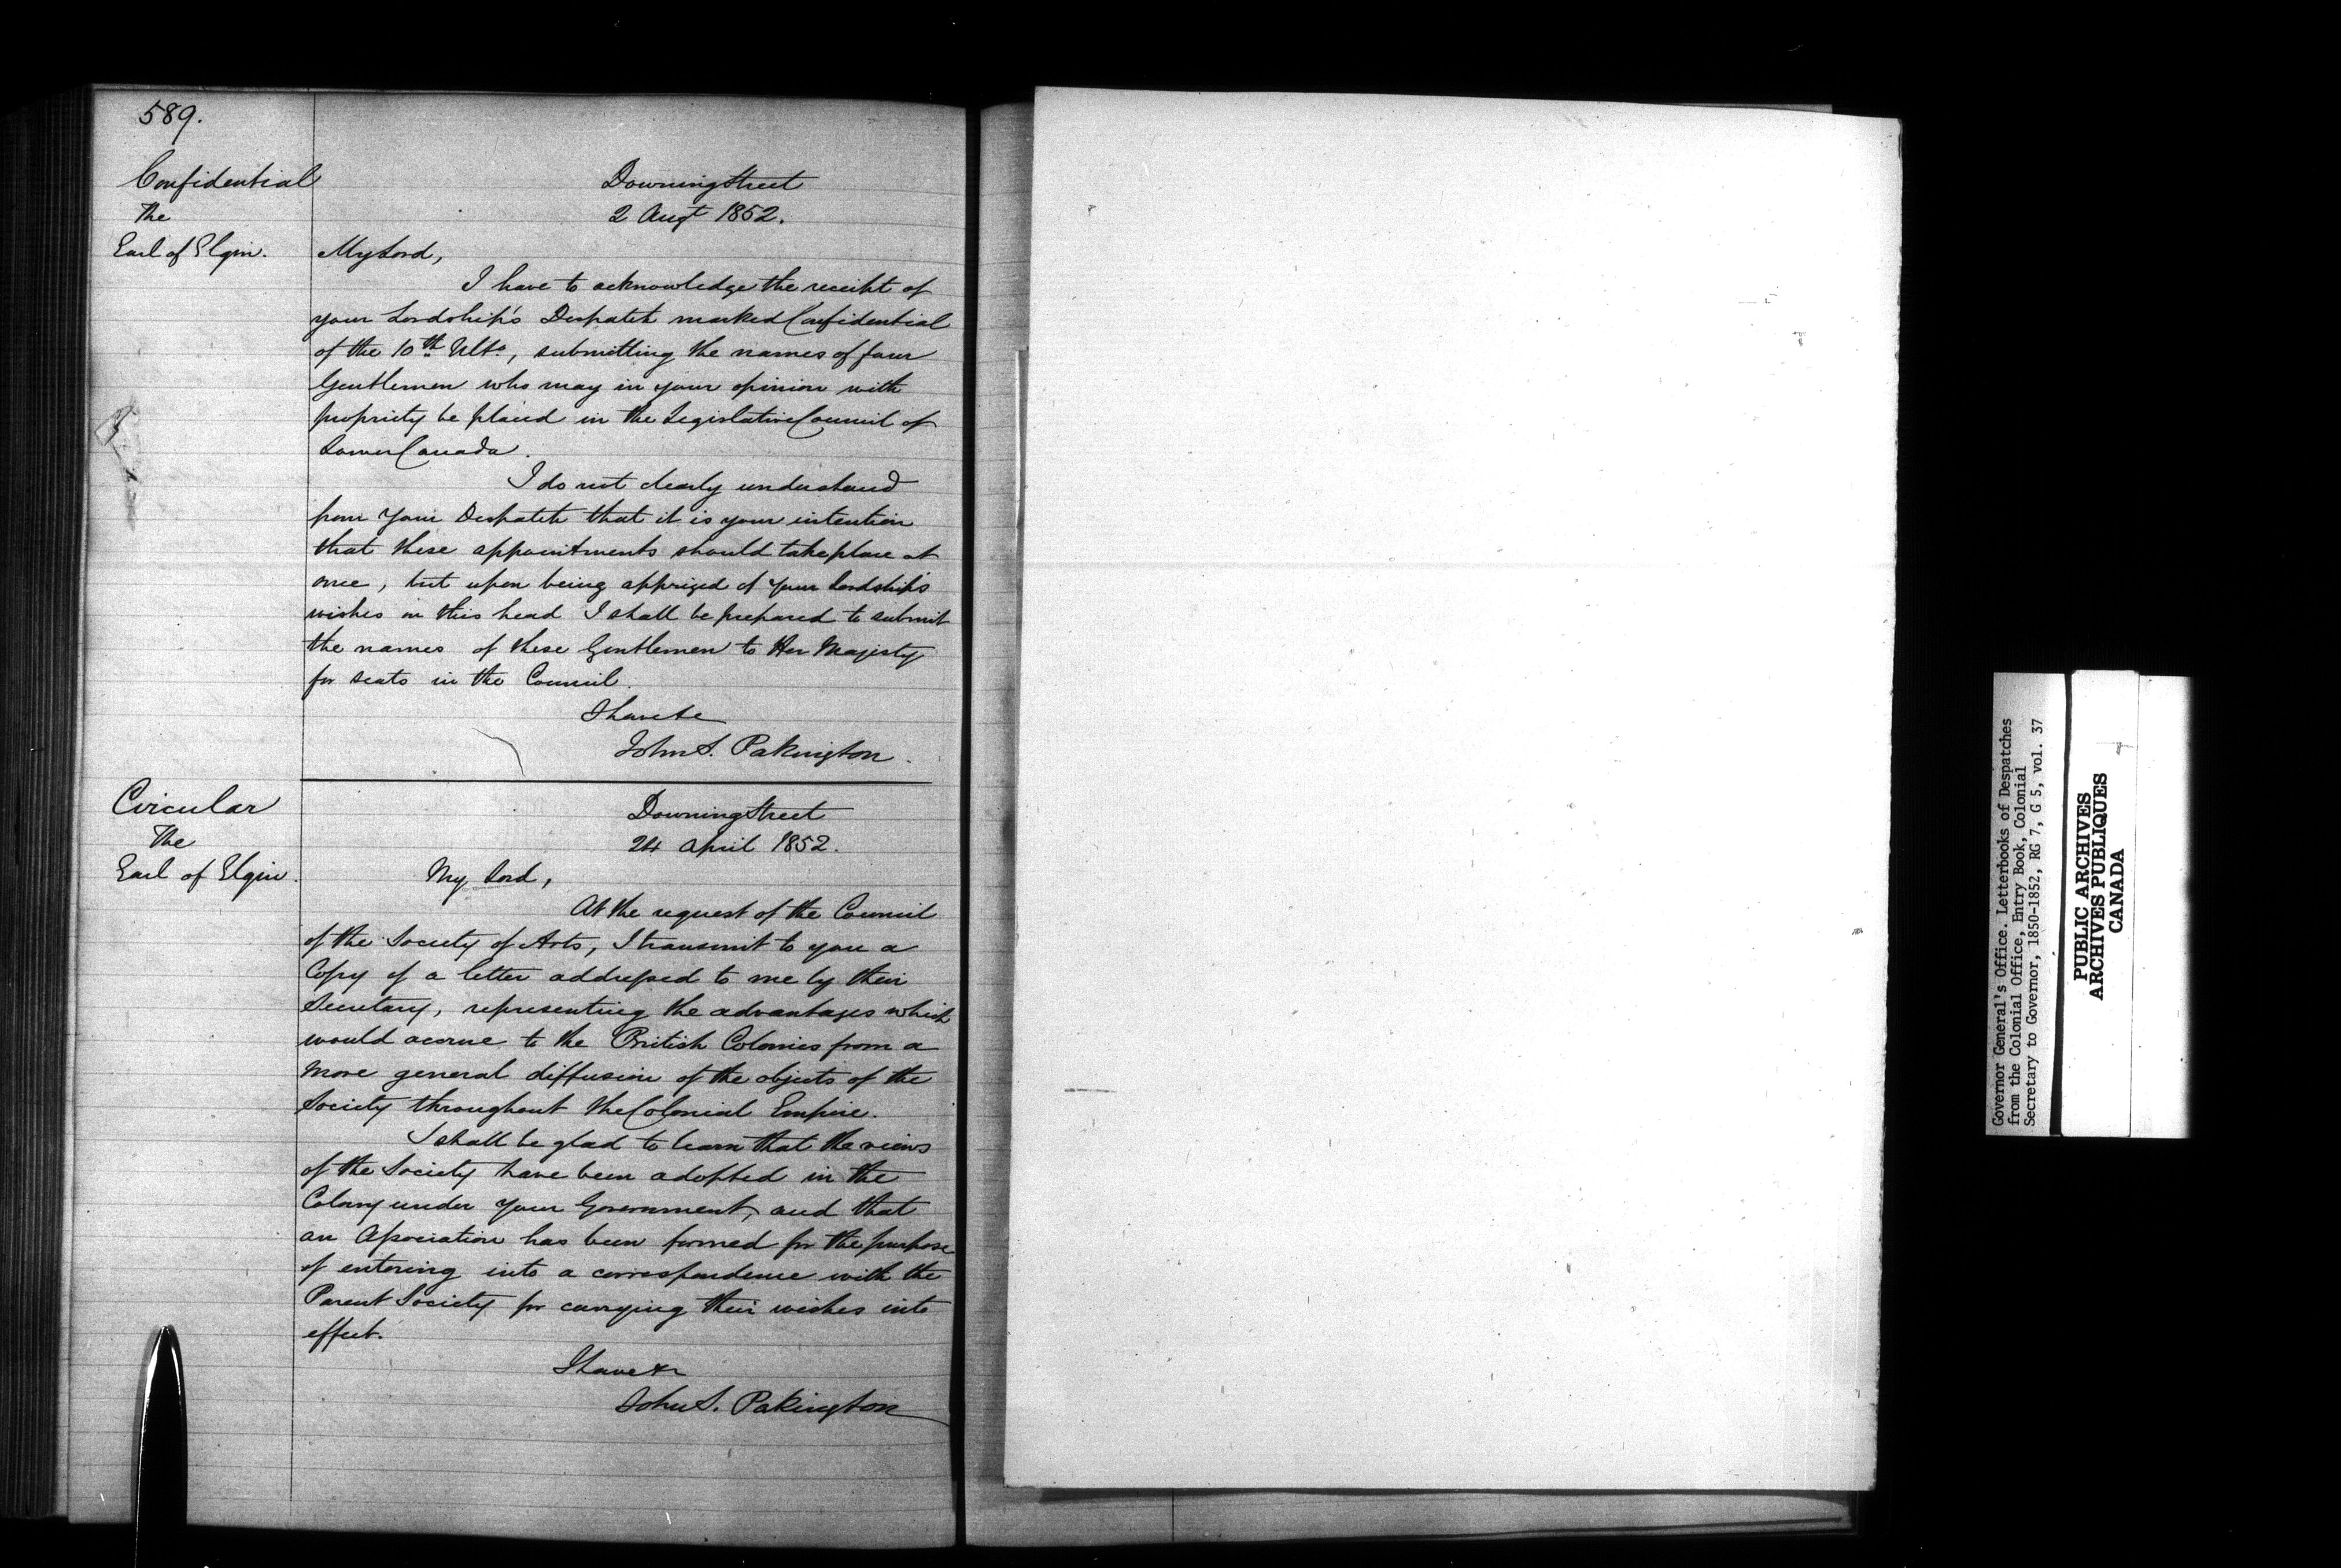 589.
Confidential
The
Earl of Elgin.
Downing Street
2 Augt 1852.
My Lord,
I have to acknowledge the receipt of
your Lordship's Despatch marked Confidential
of the 10th Ulto, submitting the names of four
Gentlemen who may in your opinion with
propriety be placed in the Legislative Council of
Lower Canada.
I do not clearly understand
from Your Despatch that it is your intention
that these appointments should take place at
once, but upon being apprized of Your Lordship's
wishes on this head I shall be prepared to submit
the names of these Gentlemen to Her Majesty
for seats in the Council.
I have &c
John S. Pakington.
Circular
The
Earl of Elgin.
Downing Street
24 April 1852.
My Lord,
At the request of the Council
of the Society of Arts, I transmit to you a
Copy of a letter addressed to me by their
Secretary, representing the advantages which
would accrue to the British Colonies from a
more general diffusion of the objects of the
Society throughout the Colonial Empire.
I shall be glad to learn that the views
of the Society have been adopted in the
Colony under your Government, and that
an Association has been formed for the purpose
of entering into a correspondence with the
Parent Society for carrying their wishes into
effect.
I have &c
John S. Pakington
Governor General's Office. Letterbooks of Despatches
from the Colonial Office, Entry Book, Colonial
Secretary to Governor, 1850-1852, RG 7, G 5, vol. 37
PUBLIC ARCHIVES
ARCHIVES PUBLIQUES
CANADA